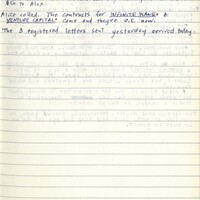 $60 to Alex
Alice called. The contracts for INFINITE PLANS &
VENTURE CAPITAL came and they're O.K. now.
The 3 registered letters sent yesterday arrived today.